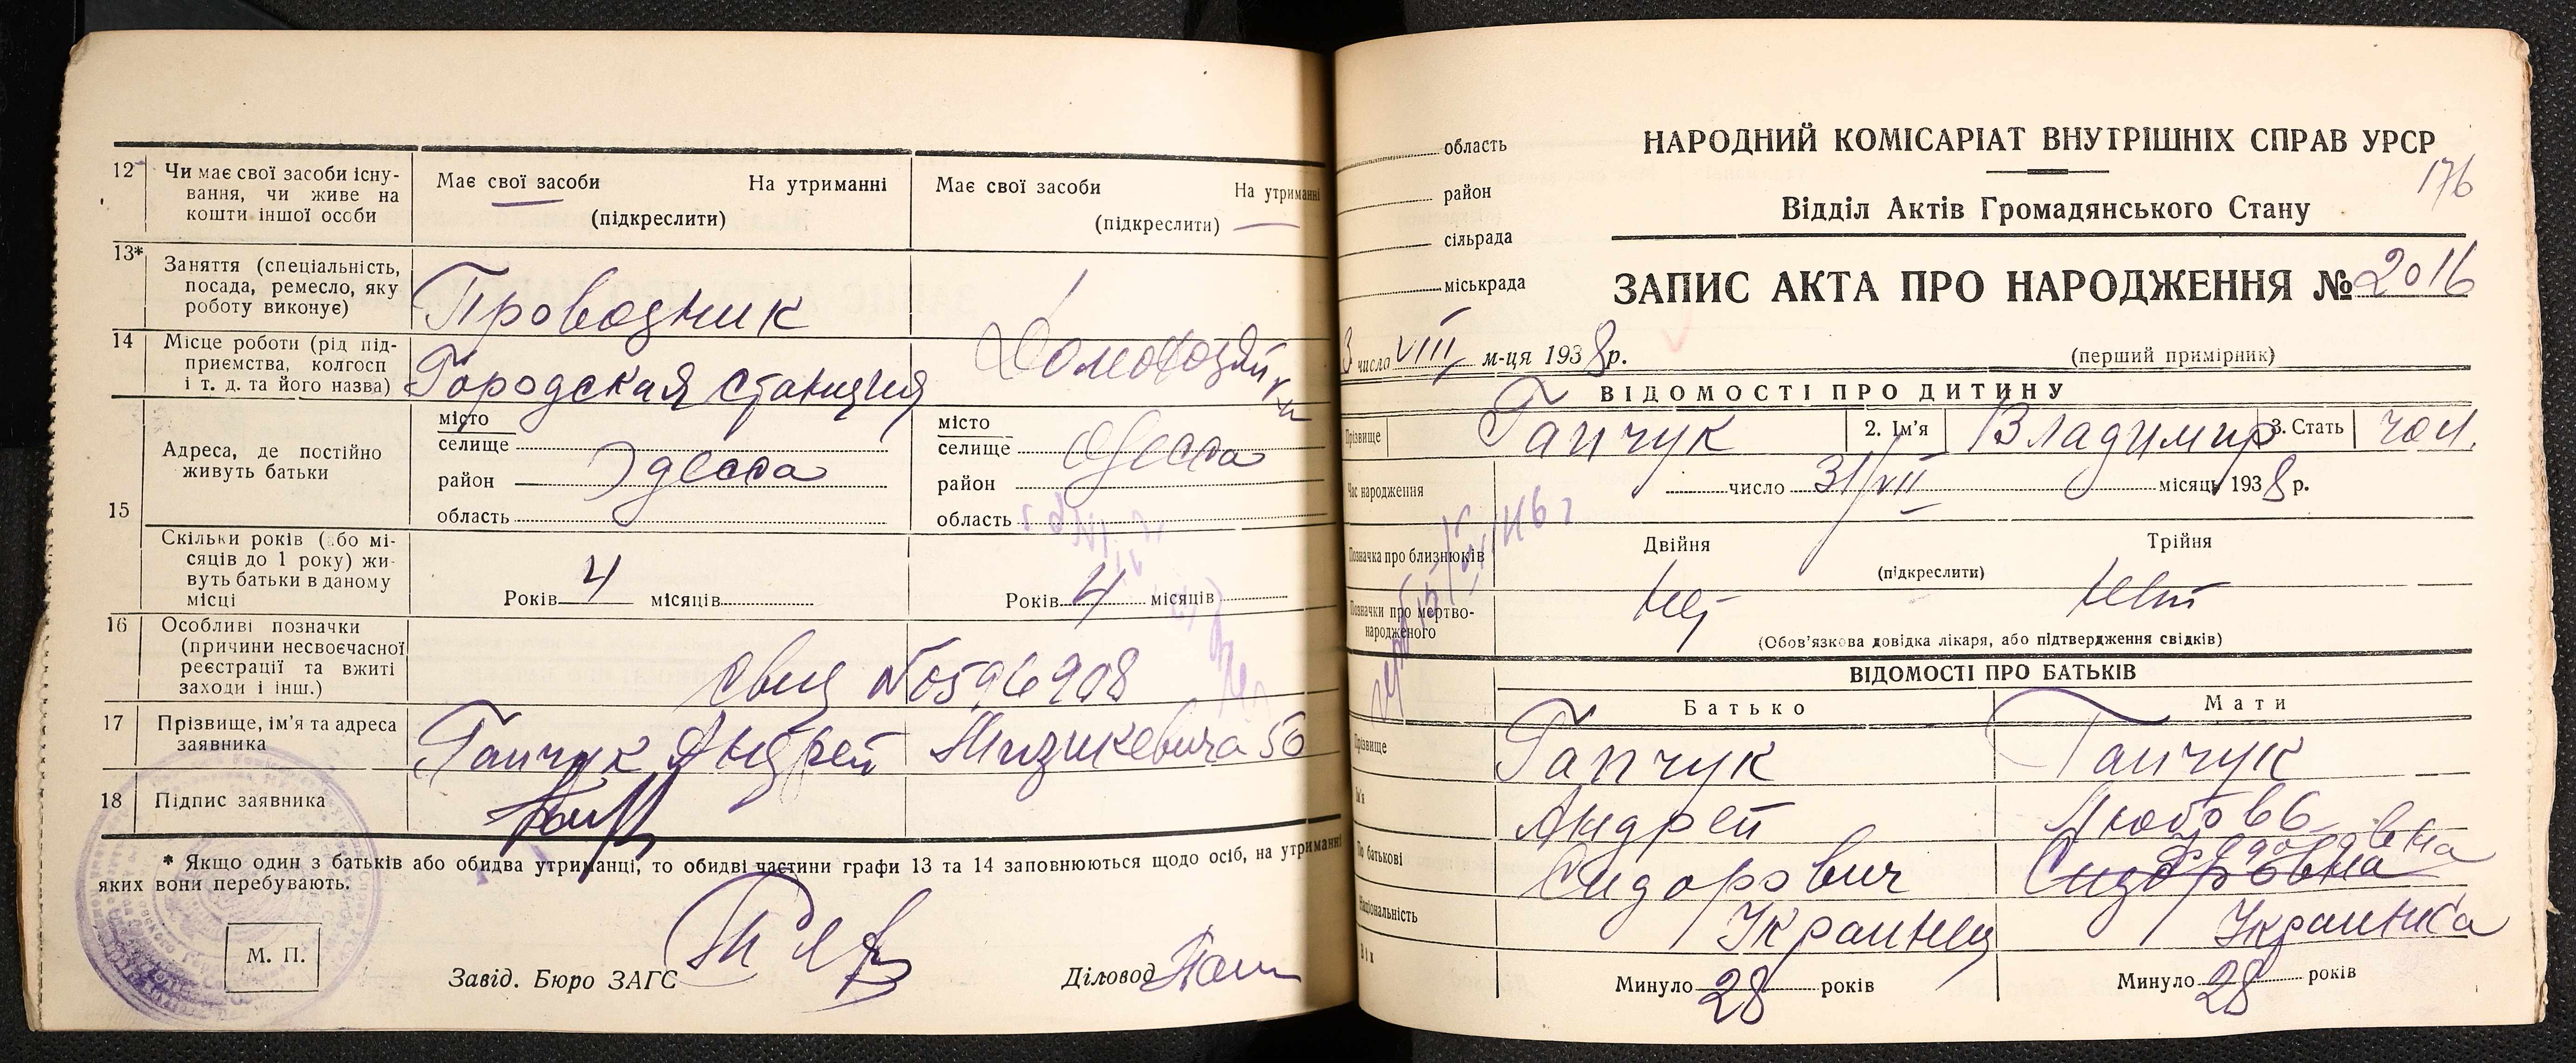 12 Чи має свої засоби існу-
вання, чи живе на
кошти іншої особи
Має свої засоби На утриманні
(підкреслити)
Має свої засоби На утриманні
(підкреслити)
13* Заняття (спеціальність,
посада, ремесло, яку
роботу виконує)
Проводник
14 Місце роботи (рід під-
приємства, колгосп
і т. д. та його назва)
Городская станция
Домохозяйка
15 Адреса, де постійно
живуть батьки
місто
селище
район Одесса
область
місто
селище Одесса
район
область
Скільки років (або мі-
сяців до 1 року) жи-
вуть батьки в даному
місці
Років 4 місяців
Років 4 місяців
16 Особливі позначки
(причини несвоєчасної
реєстрації та вжиті
заходи і інш.)
свид №0596908
17 Прізвище, ім'я та адреса
заявника
Гапчук Андрей Мицкевича 56
18 Підпис заявника
* Якщо один з батьків або обидва утриманці, то обидві частини графи 13 та 14 заповнюються щодо осіб, на утриманні
яких вони перебувають.
М. П.
Завід. Бюро ЗАГС
Діловод
область
район
сільрада
міськрада
НАРОДНИЙ КОМІСАРІАТ ВНУТРІШНІХ СПРАВ УРСР
176
Відділ Актів Громадянського Стану
ЗАПИС АКТА ПРО НАРОДЖЕННЯ № 2016
3 числа VIII м-ця 1938 р.
(перший примірник)
ВІДОМОСТІ ПРО ДИТИНУ
Прізвище Гапчук 2. Ім'я Владимир 3. Стать чол.
Час народження число 31/VII місяць 1938 р.
Позначка про близнюків
Двійня Трійня
(підкреслити)
Позначки про мертво-
народженого
нет нет
(Обов'язкова довідка лікаря, або підтвердження свідків)
ВІДОМОСТІ ПРО БАТЬКІВ
Батько Мати
Прізвище Гапчук Гапчук
Ім'я Андрей Любовь
По батькові Сидорович Сидоровна
Національність Украинец Украинка
Вік Минуло 28 років Минуло 28 років